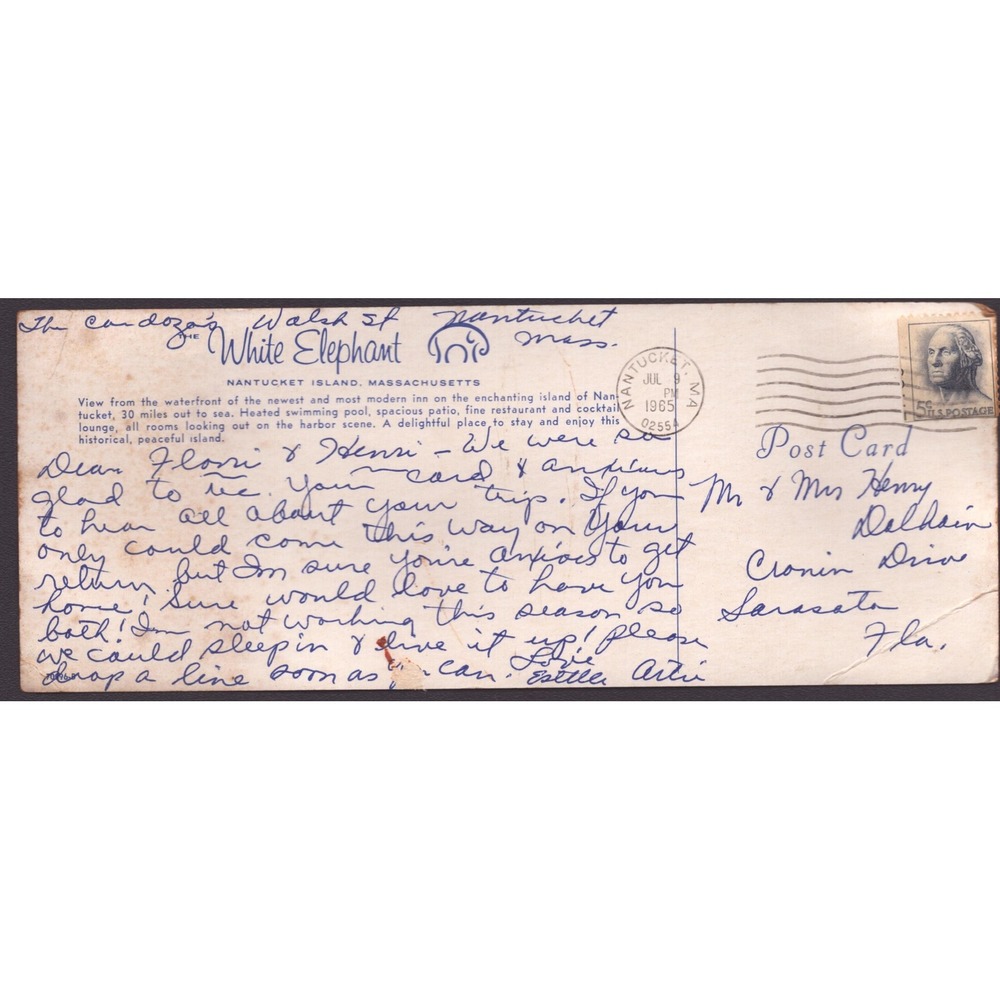 The Cardoza's Walsh St Nantucket
Mass.
THE
White Elephant
NANTUCKET ISLAND, MASSACHUSETTS
View from the waterfront of the newest and most modern inn on the enchanting island of Nan-
tucket, 30 miles out to sea. Heated swimming pool, spacious patio, fine restaurant and cocktail
lounge, all rooms looking out on the harbor scene. A delightful place to stay and enjoy this
historical, peaceful island.
Dear Florri & Henri - We were so
glad to rec. your card & anxious
to hear all about your trip. If you
only could come this way on your
return, but Im sure you're anxious to get
home! Sure would love to have you
both! Im not working this season so
we could sleep in & live it up! Please
drop a line soon as you can. Love
Estelle Artie
NANTUCKET, MA
JUL 9
PM
1965
02554
5¢
U.S. POSTAGE
Post Card
Mr & Mrs Henry
Cronin Drive
Sarasota
Fla.